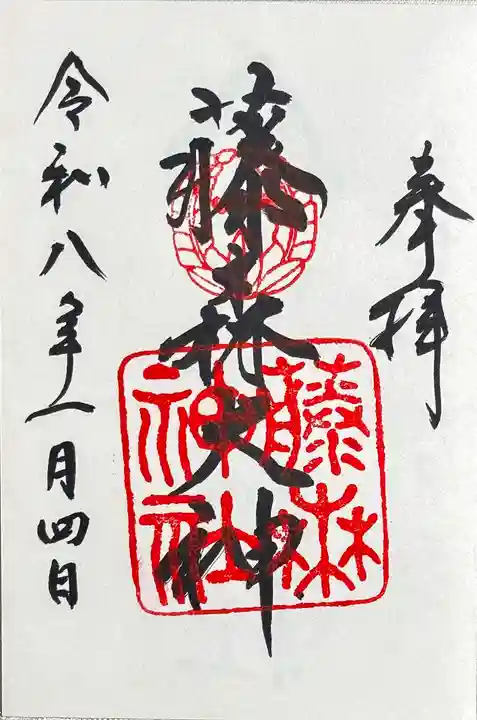 奉拝
藤森大神
藤森
神社
令和八年一月四日